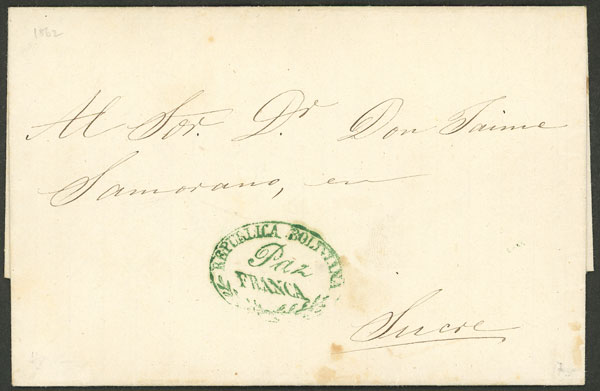 1862
Al Sor. Dr. Don Jaime
Samorano, en
REPUBLICA BOLIVIANA
Paz
FRANCA
Sucre